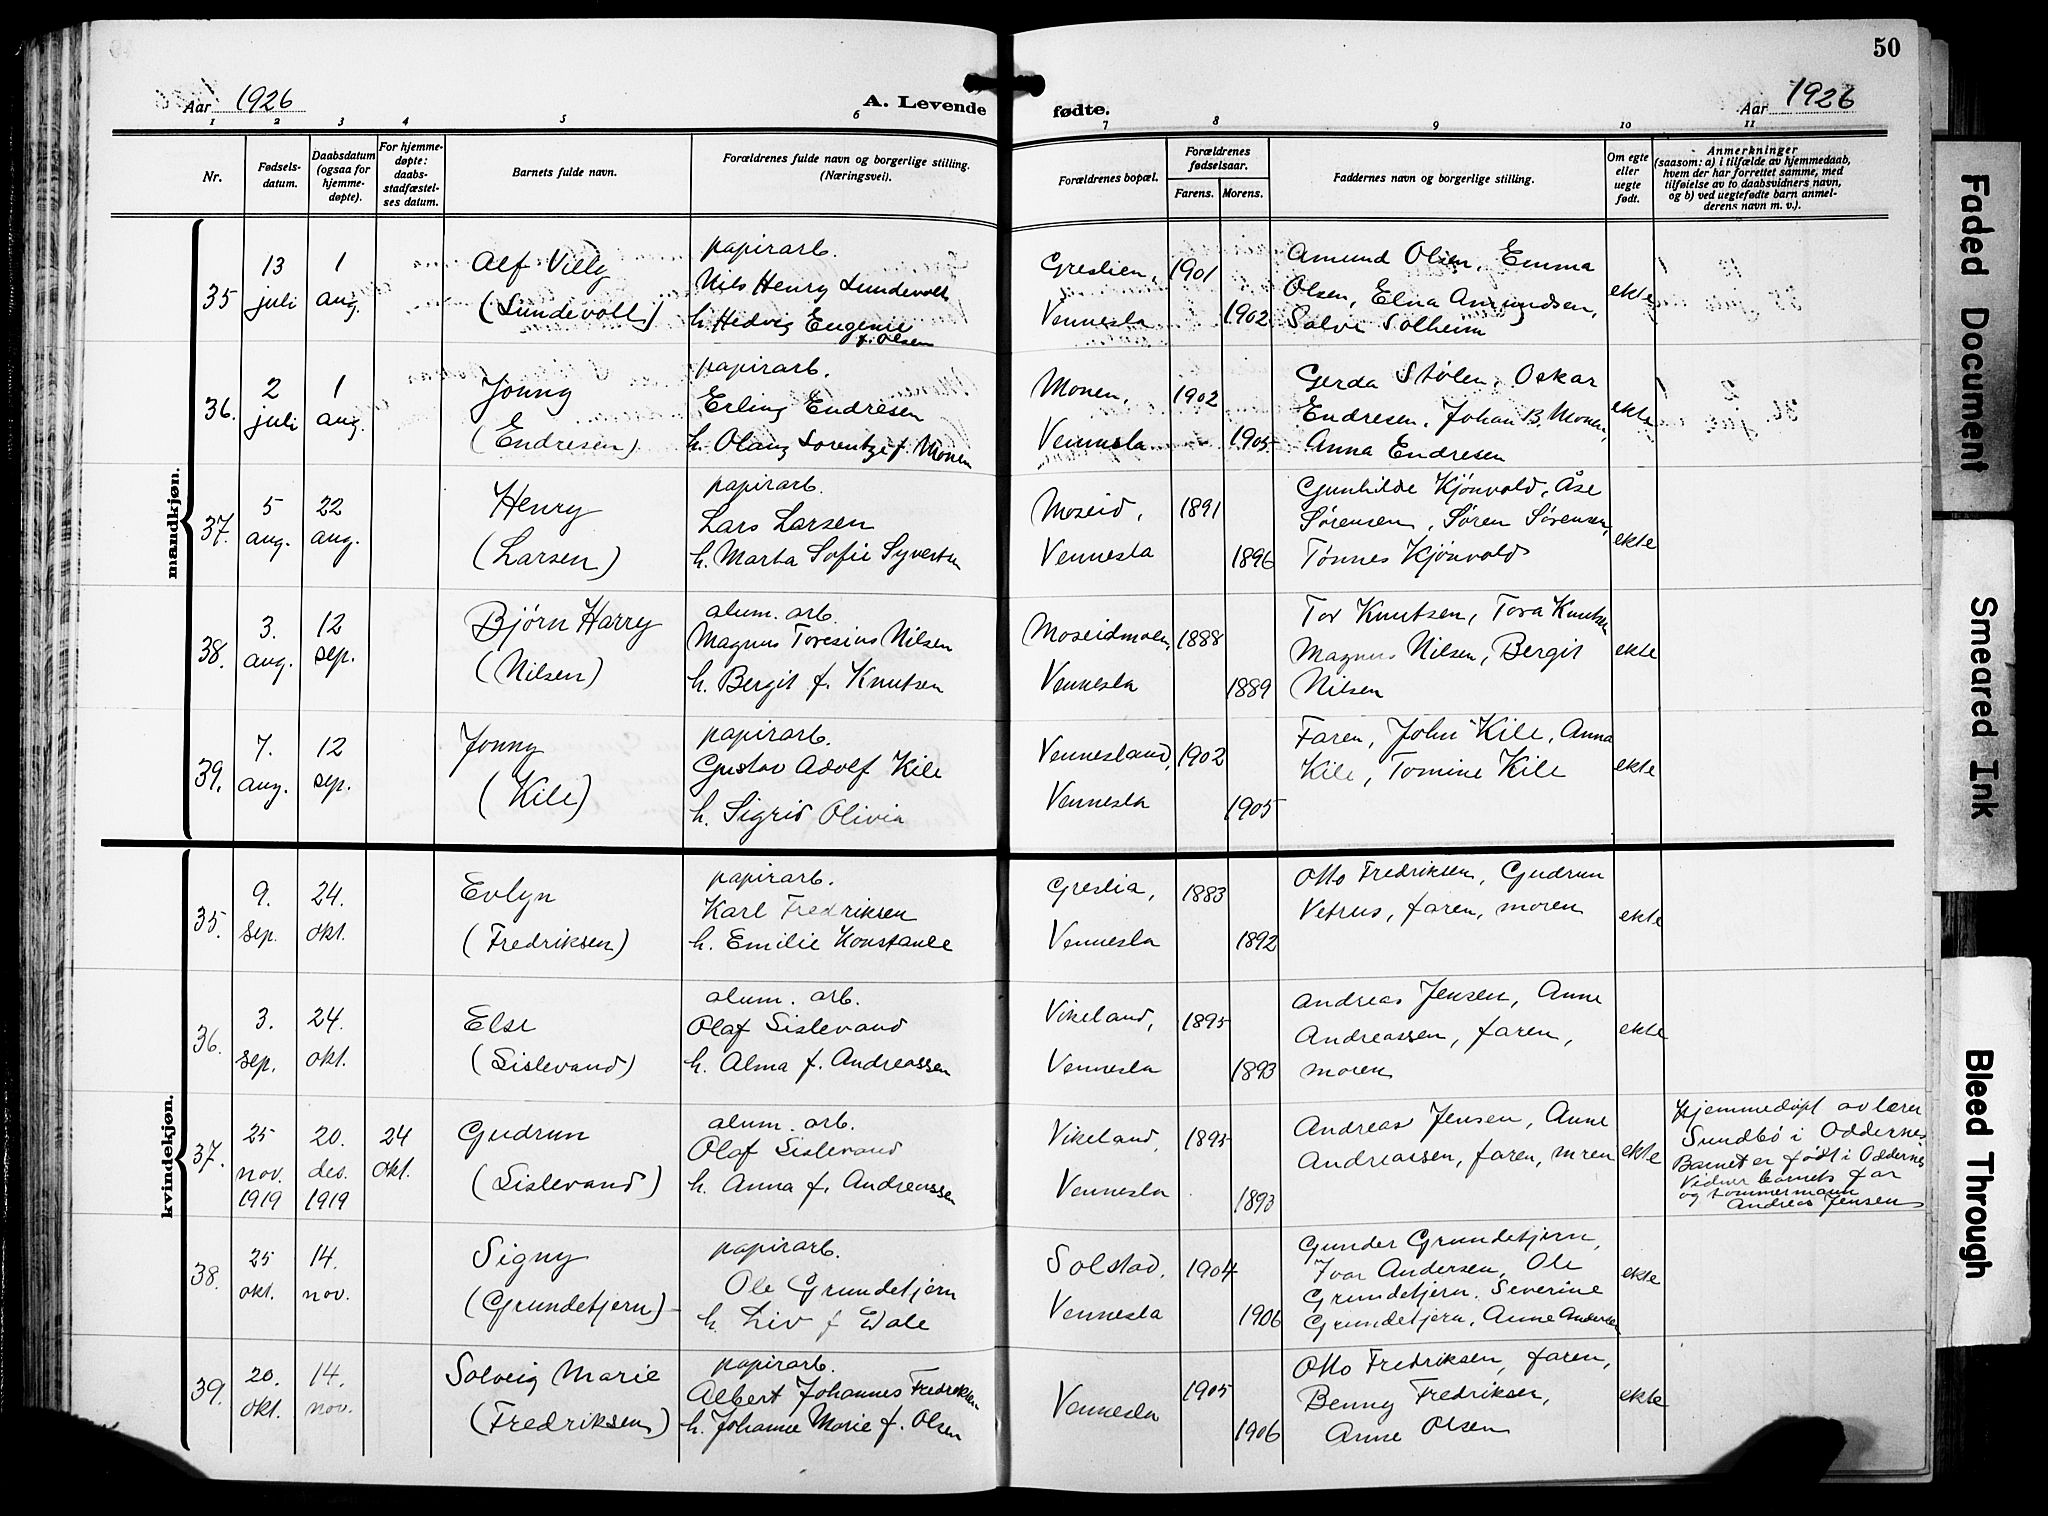 50
Aar 1926
A. Levende fødte.
Aar 1926
1 2 3 4 5 6 7 8 9 10 11
Nr.
Fødsels-
datum.
Daabsdatum
(ogsaa for
hjemme-
døpte).
For hjemme-
døpte:
daabs-
stadfæstel-
ses datum.
Barnets fulde navn.
Forældrenes fulde navn og borgerlige stilling.
(Næringsvei).
Forældrenes bopæl.
Forældrenes
fødselsaar.
Farens. Morens.
Faddernes navn og borgerlige stilling.
Om egte
eller
uegte
født.
Anmerkninger
(saasom: a) i tilfælde av hjemmedaab,
hvem der har forrettet samme, med
tilføielse av to daabsvidners navn,
og b) ved uegtefødte barn anmel-
derens navn m. v.).
mandkjøn.
35
13
juli
1
aug.
Alf Villy
(Sundevoll)
papirarb.
Nils Henry Sundevoll
h. Hedvig Eugenie
f. Olsen
Greslien,
Vennesla
1901
1902
Amund Olsen, Emma
Olsen, Elna Amundsen,
Salve Solheim
ekte
36.
2
juli
1
aug.
Jonny
(Endresen)
papirarb.
Erling Endresen
h. Olaug Lorentze f. Monen
Monen,
Vennesla
1902
1905
Gerda Stølen, Oskar
Endresen, Johan B. Monen,
Anna Endresen
ekte
37.
5
aug.
22
aug.
Henry
(Larsen)
papirarb.
Lars Larsen
h. Marta Sofie Syvertsen
Moseid,
Vennesla
1891
1896
Gunhilde Kjønvold, Åse
Sørensen, Søren Sørensen,
Tønnes Kjønvold
ekte
38.
3.
aug.
12
sep.
Bjørn Harry
(Nilsen)
alum. arb.
Magnus Toresius Nilsen
h. Bergit f. Knutsen
Moseidmoen,
Vennesla
1888
1889
Tor Knutsen, Tora Knutsen
Magnus Nilsen, Bergit
Nilsen
ekte
39.
7.
aug.
12
sep.
Jonny
(Kile)
papirarb.
Gustav Adolf Kile
h. Sigrid Olivia
Vennesland,
Vennesla
1902
1905
Faren, John Kile, Anna
Kile, Tomine Kile
ekte
kvindekjøn.
35.
9.
sep.
24.
okt.
Evlyn
(Fredriksen)
papirarb.
Karl Fredriksen
h. Emilie Konstanse
Greslia,
Vennesla
1883
1892
Otto Fredriksen, Gudrun
Vetrus, faren, moren
ekte
36.
3.
sep.
24.
okt.
Else
(Sislevand)
alum. arb.
Olaf Sislevand
h. Alma f. Andreassen
Vikeland,
Vennesla
1895
1893
Andreas Jensen, Anne
Andreassen, faren,
moren
ekte
37.
25
nov.
1919
20.
des.
1919
24
okt.
Gudrun
(Sislevand)
alum. arb.
Olaf Sislevand
h. Anna f. Andreassen
Vikeland,
Vennesla
1895
1893
Andreas Jensen, Anne
Andreassen, faren, mren
ekte
Hjemmedøpt av lærer
Sundbø i Oddernes
Barnet er født i Oddernes
Vidner barnets far
og tømmermann
Andreas Jensen
38.
25
okt.
14.
nov.
Signy
(Grundetjern)
papirarb.
Ole Grundetjern
h. Liv f Dale
Solstad,
Vennesla
1904
1906
Gunder Grundetjern,
Ivar Andersen, Ole
Grundetjern, Severine
Grundetjern, Anne Andersen
ekte
39.
20.
okt.
14.
nov.
Solveig Marie
(Fredriksen)
papirarb.
Albert Johannes Fredriksen
h. Johanne Marie f. Olsen
Vennesla
1905
1906
Otto Fredriksen, faren,
Benny Fredriksen,
Anne Olsen
ekte
Faded Document
Smeared Ink
Bleed Through